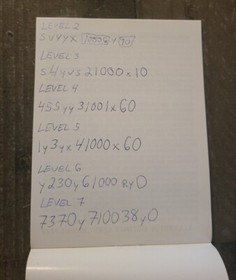 LEVEL 2
LEVEL 3
S4yvs21000x10
LEVEL 4
455yy31001x60
LEVEL 5
1y3yx41000x60
LEVEL 6
y230y61000Ryo
LEVEL 7
7370y710038y0